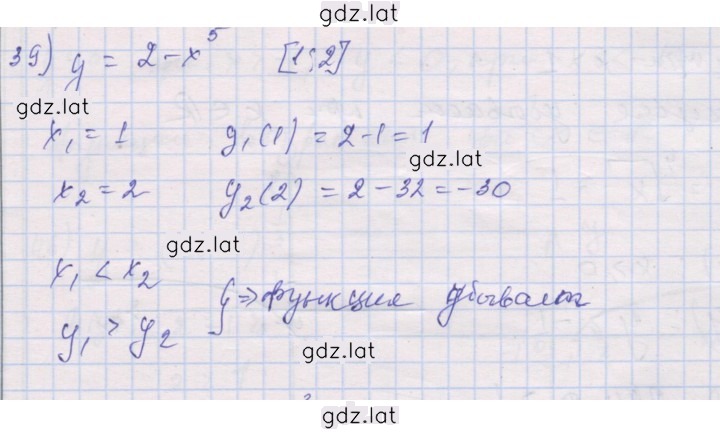 gdz.lat
39) y = 2 - x⁵ [1; 2]
gdz.lat
x₁ = 1 y₁(1) = 2 - 1 = 1
gdz.lat
x₂ = 2 y₂(2) = 2 - 32 = -30
gdz.lat
x₁ < x₂
y₁ > y₂ } ⇒ функция убывает
gdz.lat
gdz.lat